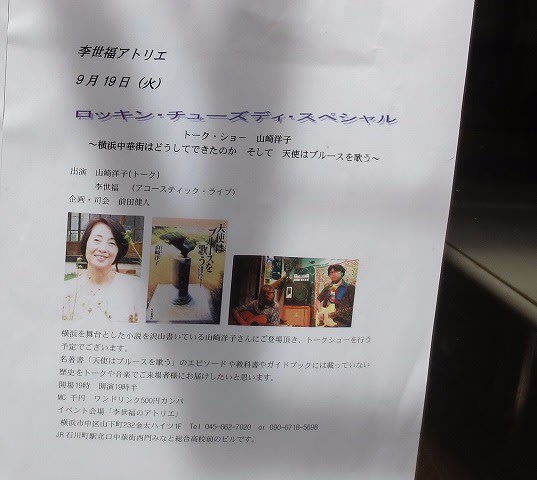 李世福アトリエ
9月19日（火）
ロッキン・チューズディ・スペシャル
トーク・ショー　山崎洋子
～横浜中華街はどうしてできたのか　そして　天使はブルースを歌う～
出演　山崎洋子(トーク)
李世福　（アコースティック・ライブ）
企画・司会　前田健人
天使は
ブルースを
歌う
山崎洋子
横浜を舞台とした小説を沢山書いている山崎洋子さんにご登場頂き、トークショーを行う
予定でございます。
名著書「天使はブルースを歌う」のエピソードや教科書やガイドブックには載っていない
歴史をトークや音楽でご来場者様にお届けしたいと思います。
開場19時　開演19時半
MC 千円　ワンドリンク500円カンパ
イベント会場「李世福のアトリエ」
横浜市中区山下町232金太ハイツ1F　Tel 045-662-7020　or 090-6718-5698
JR 石川町駅北口中華街西門みなと総合高校前のビルです。